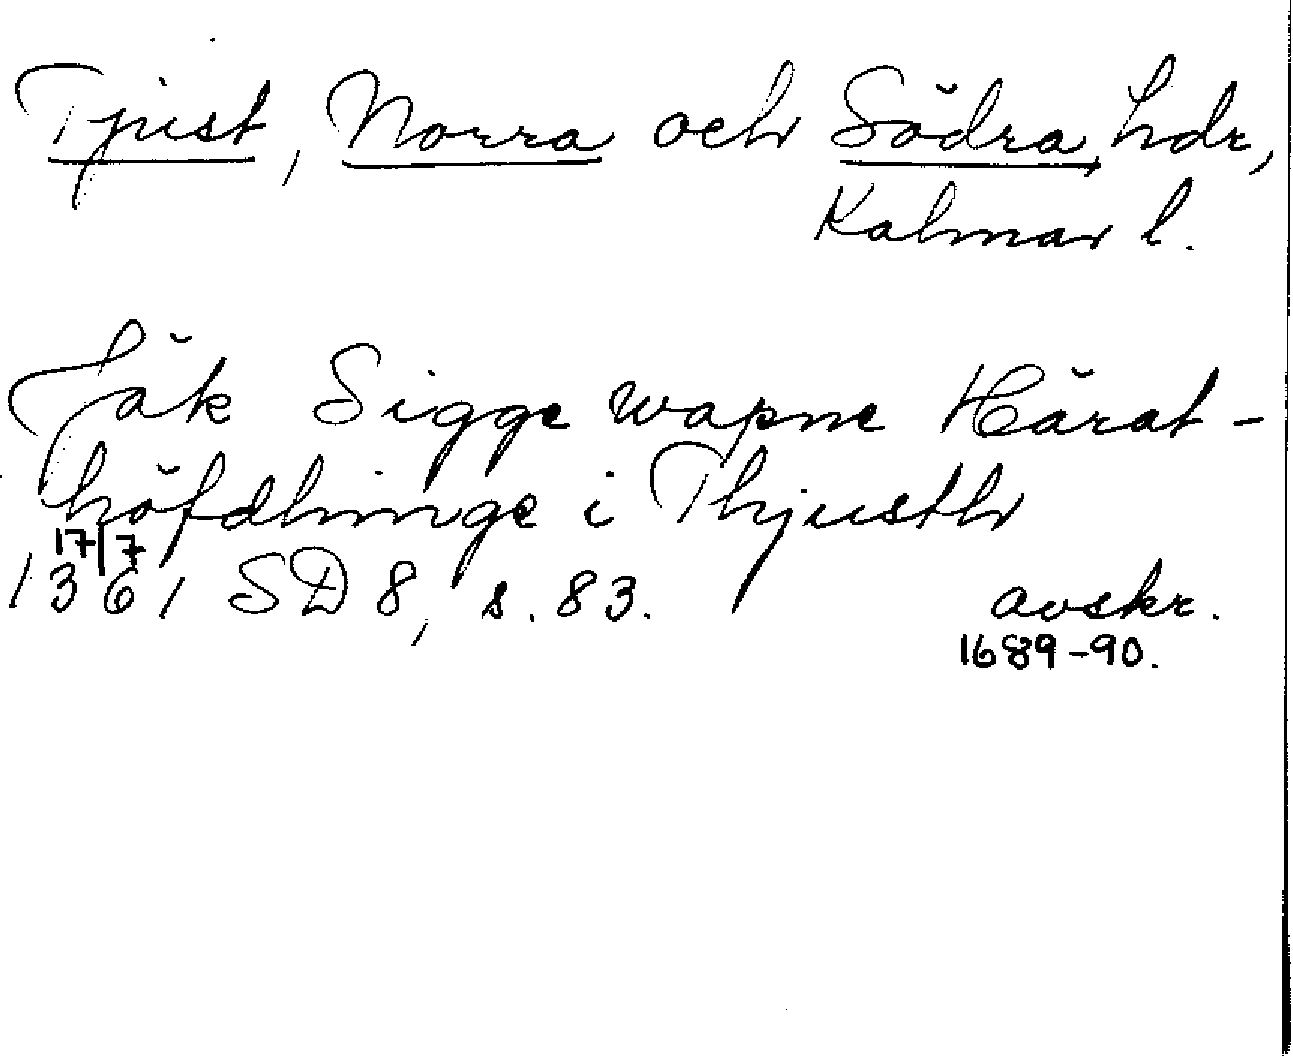 Tjust, Norra och Södra, hdr,
Kalmar l.
Jäk Sigge wapne Härat-
höfdhinge i Thjusth
17/7
1361 SD 8, s. 83. avskr.
1689-90.